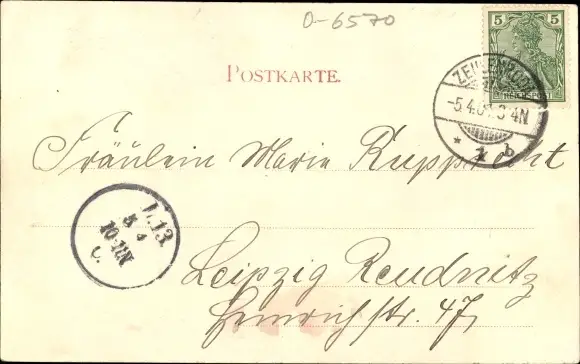 D-6570
5 5
REICHSPOST
POSTKARTE.
ZEULENRODA
-5.4.0 3-4N
* 1 b
Fräulein Marie Rupprecht
L.13.
5 4
10-11N
c.
Leipzig Reudnitz
Heinrichstr. 47,